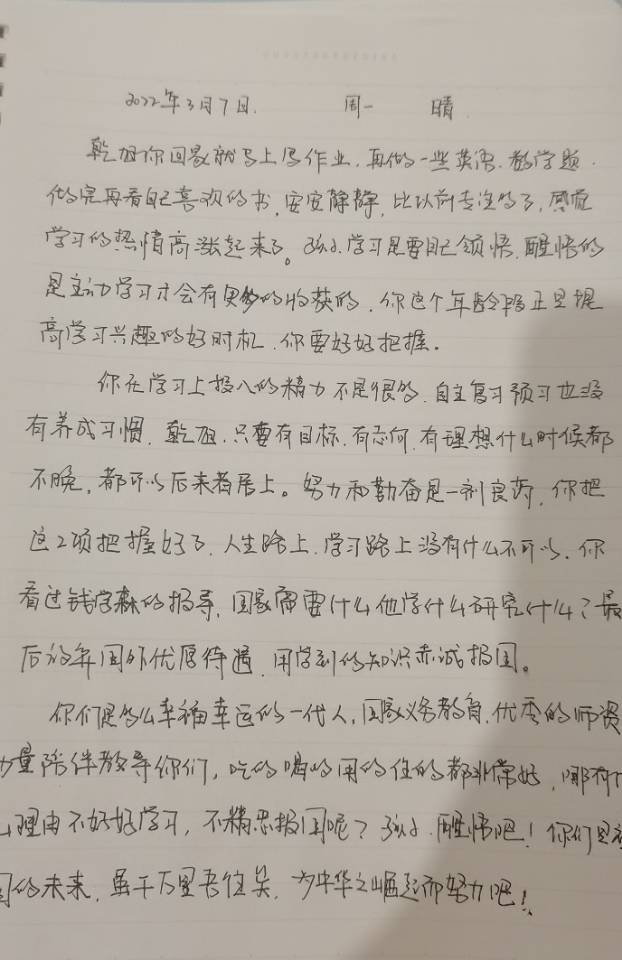 2022年3月7日. 周一 晴
乾旭你回家就马上写作业.再做一些英语.数学题.
做完再看自己喜欢的书,安安静静,比以前专注多了,感觉
学习的热情高涨起来了。孩子.学习是要自己领悟.醒悟的
是主动学习才会有更多的收获的.你这个年龄段正是提
高学习兴趣的好时机.你要好好把握.
你在学习上投入的精力不是很多.自主复习预习也没
有养成习惯.乾旭.只要有目标.有志向.有理想什么时候都
不晚,都可以后来者居上。努力和勤奋是一剂良药,你把
这2项把握好了.人生路上.学习路上没有什么不可以.你
看过钱学森的报导.国家需要什么他学什么研究什么?最
后放弃国外优厚待遇.用学到的知识赤诚报国。
你们是多么幸福幸运的一代人,国家义务教育.优秀的师资
力量陪伴教导你们,吃的喝的用的住的都非常好,哪有什
么理由不好好学习,不精忠报国呢?孩子.醒悟吧!你们是
国的未来.虽千万里吾往矣.为中华之崛起而努力吧!